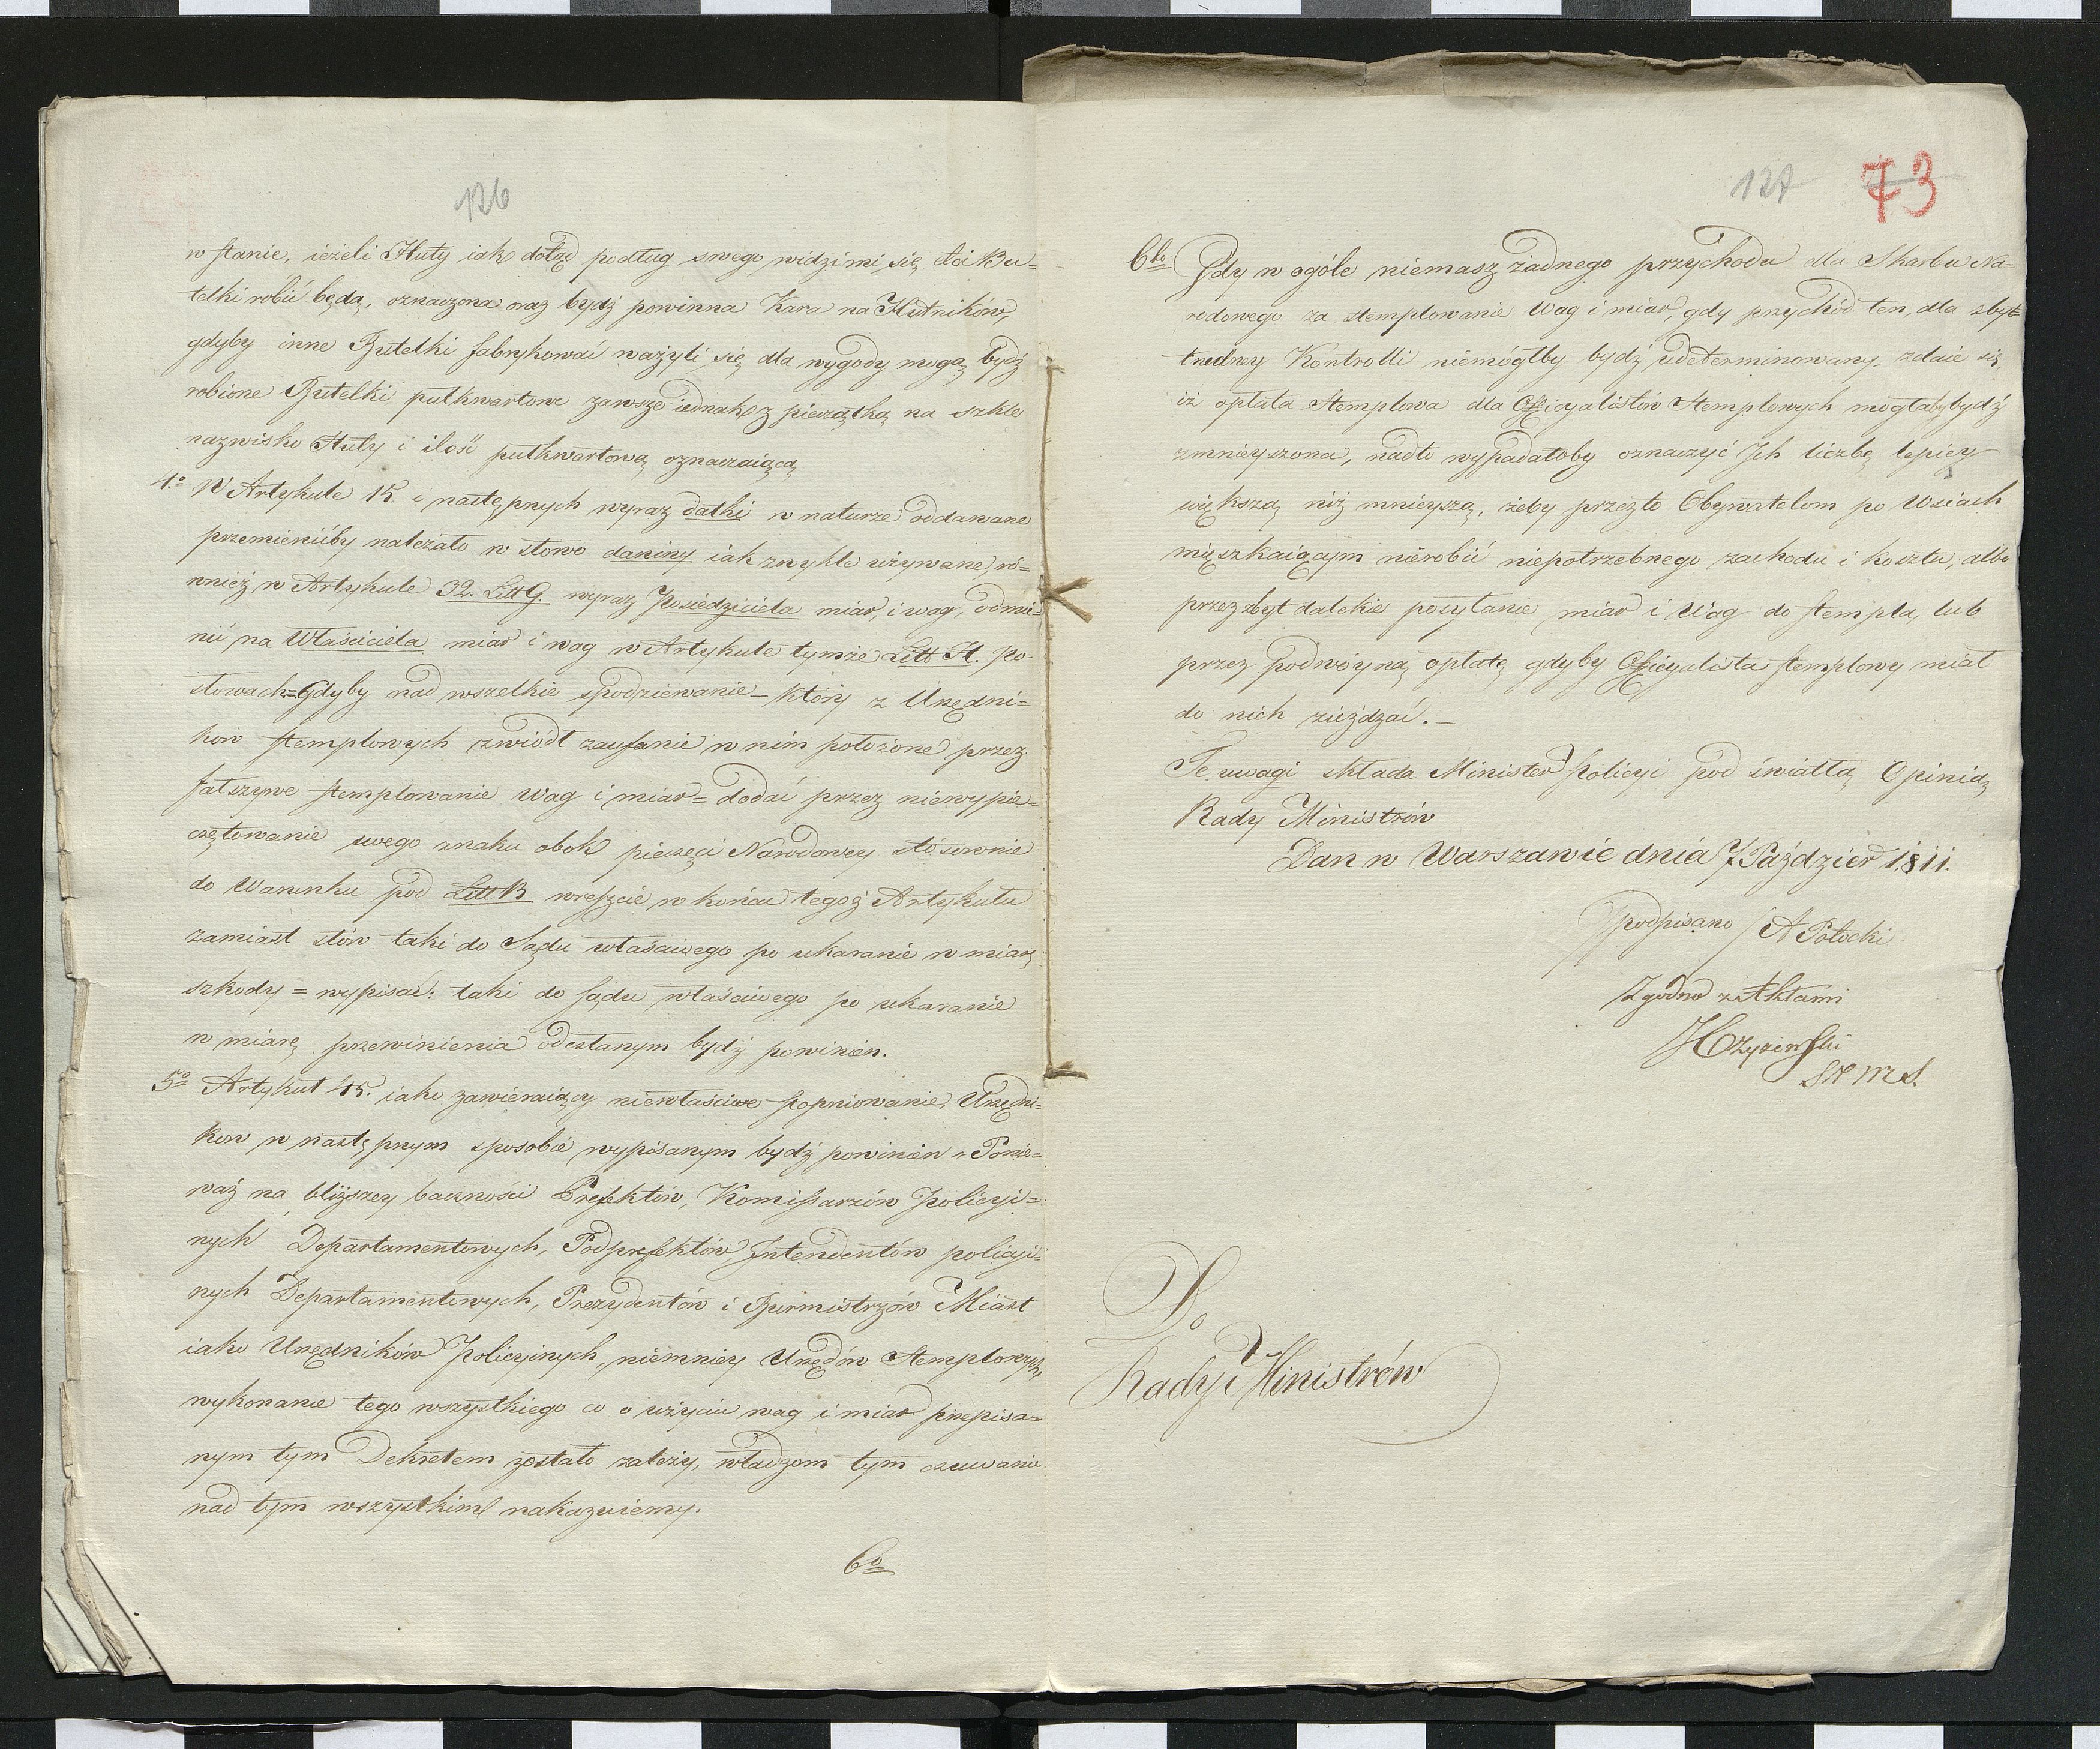 126
w stanie, ieżeli Huty iak dotąd podług swego widzi mi się Bu=
telki robić będą, oznaczona oraz bydź powinna Kara na Hutników,
gdyby inne Butelki fabrykować ważyli się dla wygody mogą bydź
robione Butelki pułkwartowe zawsze iednak z pieczątką na szkle
nazwisko Huty i ilość pułkwartową oznaczaiącą
4.o W Artykule 15 i następnych wyraz datki w naturze oddawane
przemienićby należało w słowo daniny iak zwykle używane, ró=
wnież w Artykule 32. Litt G. wyraz Posiedziciela miar, i wag, odmie=
nić na Właściciela miar i wag w Artykule tymże Litt H. po
słowach=Gdyby nad wszelkie spodziewanie – który z Urzędni=
kow stemplowych zwiódł zaufanie w nim położone przez
fałszywe stemplowanie Wag i miar= dodać przez niewypie=
czętowanie swego znaku obok pieczęci Narodowey stósownie
do Warunku pod Litt B wreszcie w końcu tegoż Artykułu
zamiast słów taki do Sądu właściwego po ukaranie w miarę
szkody = wypisać: taki do sądu właściwego po ukaranie
w miarę przewinienia odesłanym bydź powinien.
5o Artykuł 45. iako zawieraiący niewłaściwe stopniowanie Urzędni=
kow w następnym sposobie wypisanym bydź powinien „ Ponie=
waż na bliższey baczności Prefektów, Komissarzów Policyi=
nych Departamentowych, Podprefektów Intendentów policyi=
nych Departamentowych, Prezydentów i Burmistrzów Miast
iako Urzędników Policyinych, niemniey Urzędów Stemplowych,
wykonanie tego wszystkiego co o użyciu wag i miar przepisa=
nym tym Dekretem zostało zależy, władzom tym czuwanie
nad tym wszystkiem nakazuiemy.
6o
127 73
6to Gdy w ogóle niemasz żadnego przychodu dla Skarbu Na=
rodowego za stemplowanie Wag i miar, gdy przychód ten, dla zbyt=
trudney Kontrolli niemógłby bydź udeterminowany, zdaie się
iż opłata Stemplowa dla Officyalistów Stemplowych mogłaby bydź
zmnieyszona, nadto wypadałoby oznaczyć Ich liczbę lepiey
większą niż mnieyszą, żeby przezto Obywatelom po Wsiach
mieszkaiącym nierobić niepotrzebnego zachodu i kosztu, albo
przez zbyt dalekie posyłanie miar i Wag do stempla, lub
przez podwóyną opłatę gdyby Officyalista stemplowy miał
do nich zieżdzać. –
Te uwagi składa Minister Policyi pod światłą Opinią
Rady Ministrów
Dan w Warszawie dnia 7 Paździer 1811.
podpisano / A Potocki
Zgodno z Aktami
Do
Rady Ministrów